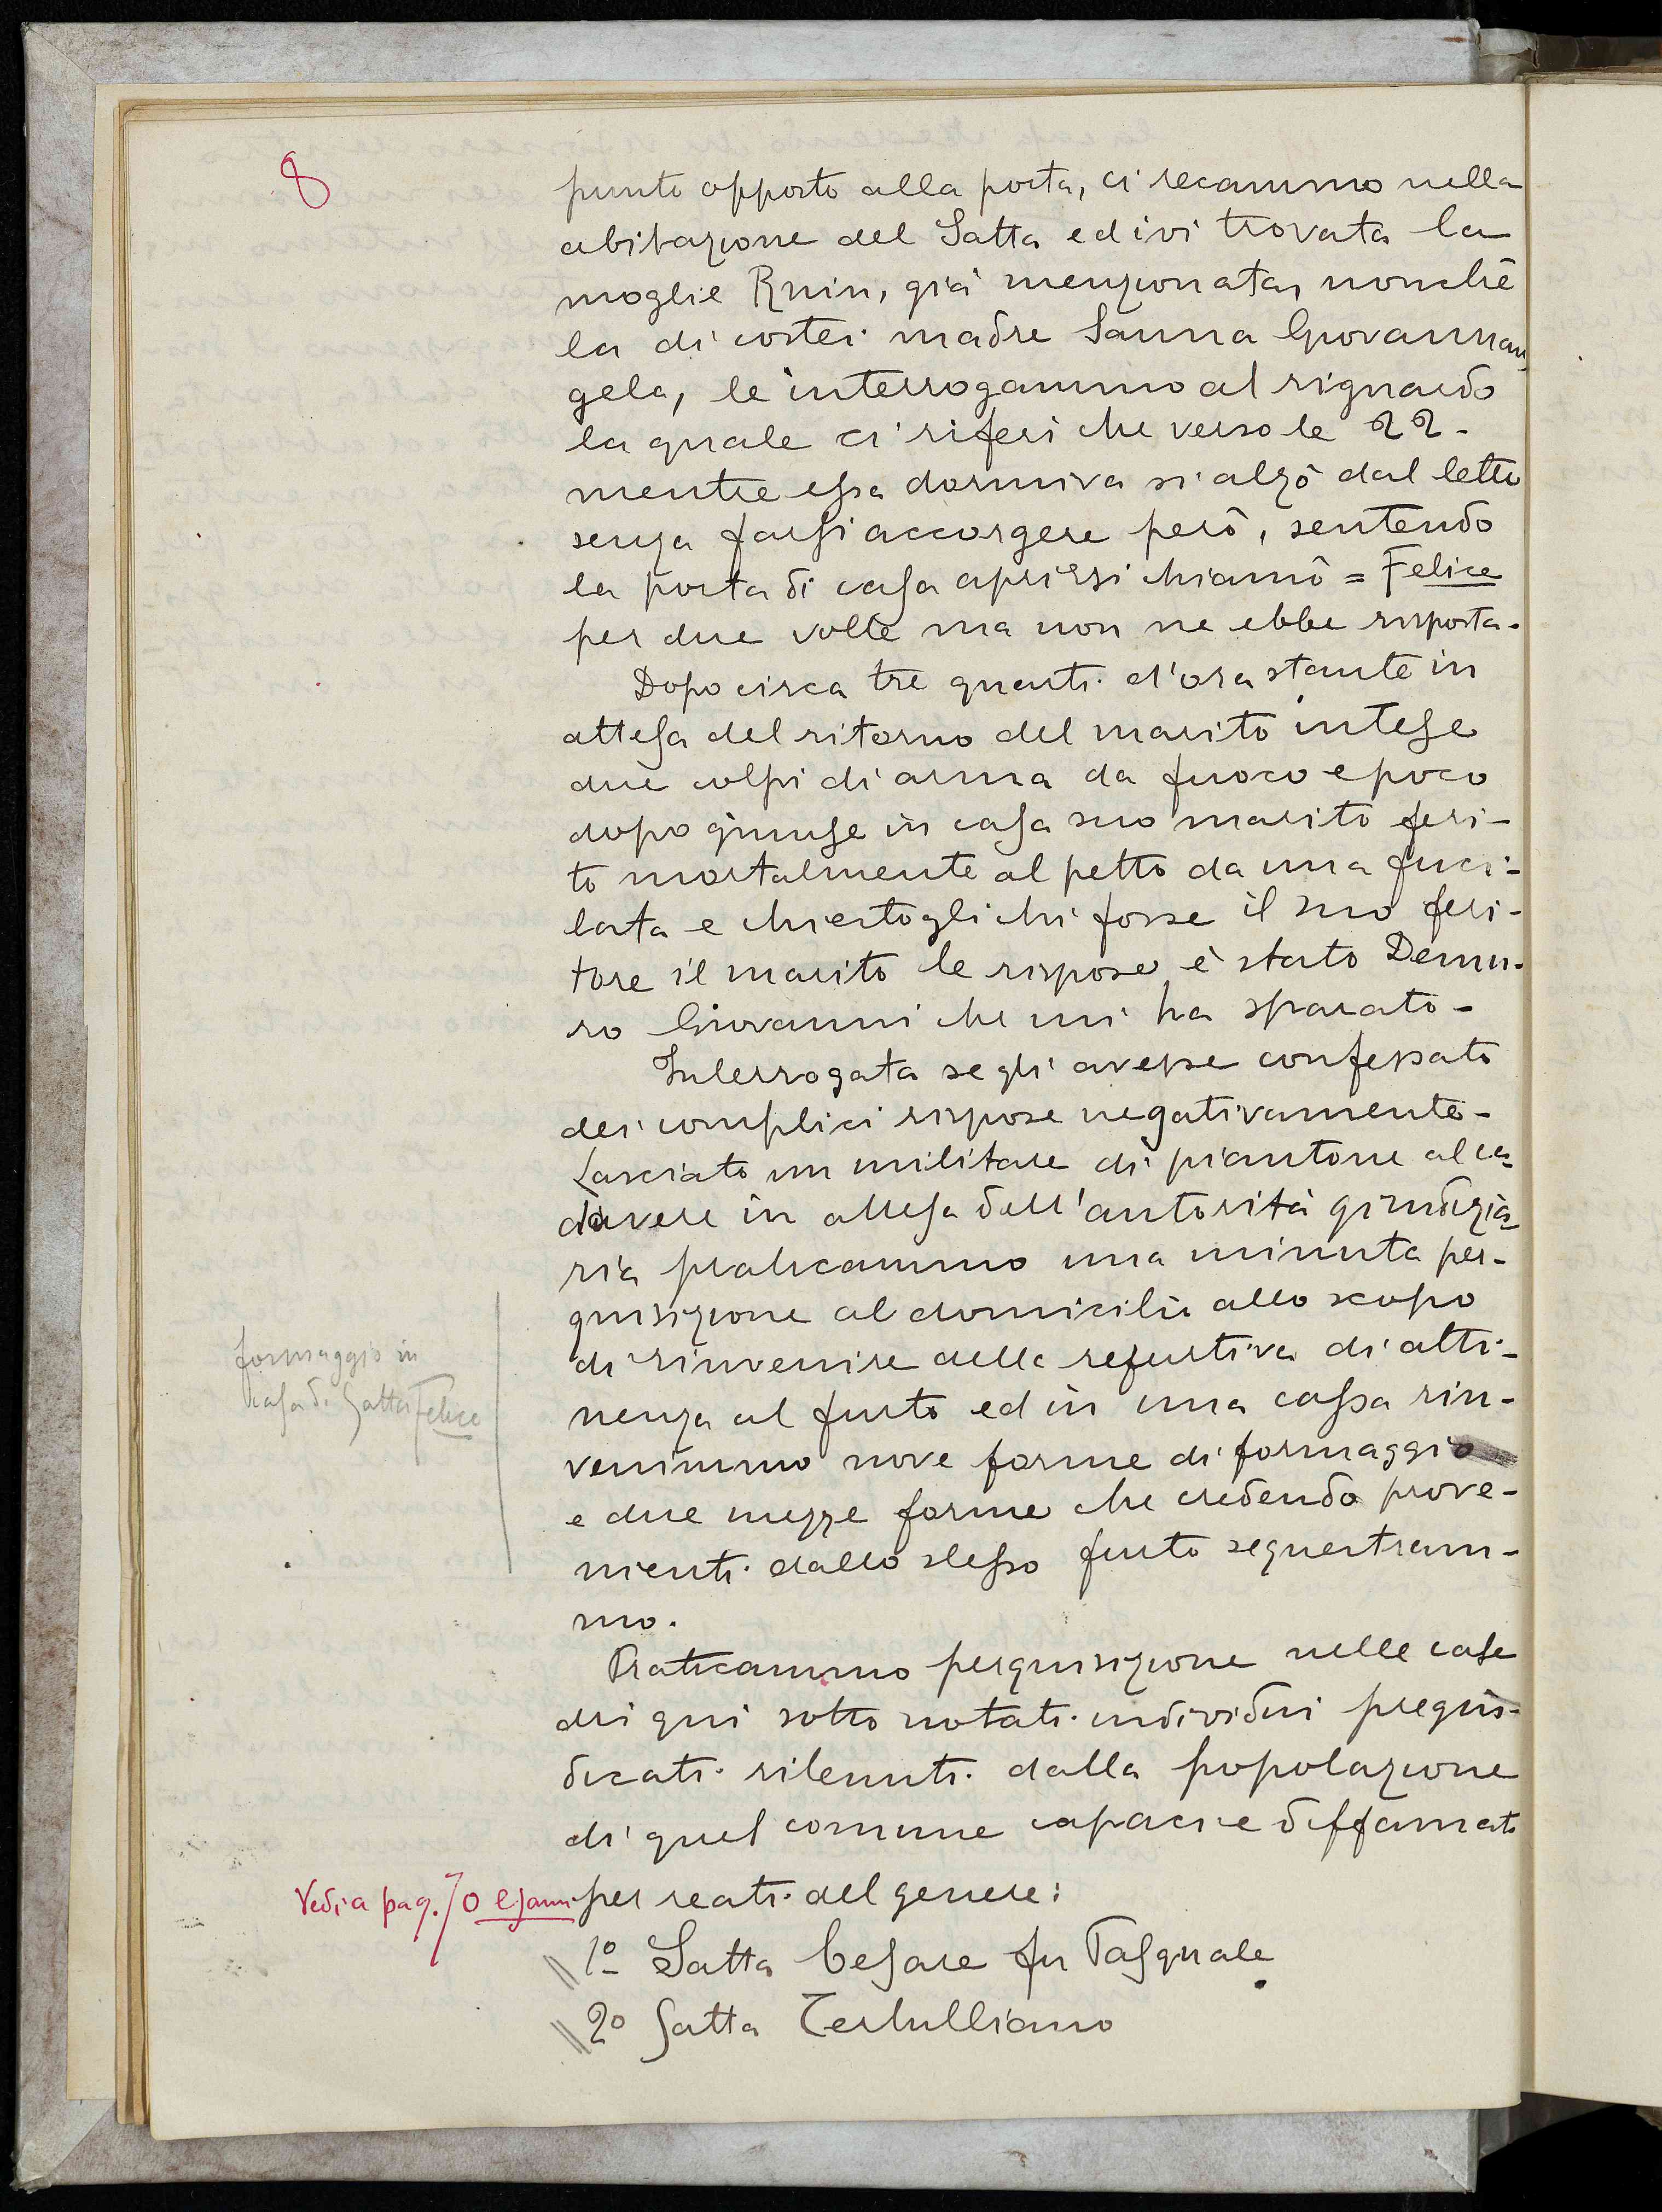 8
punto opposto alla porta, ci recammo nella
abitazione del Satta ed ivi trovata la
moglie Ruin, già menzionata, nonchè
la di costei madre Sanna Giovannan,
gela, le interrogammo al riguardo
la quale ci riferi che verso le 22-
mentre essa dormiva si alzò dal letto
senza farsi accorgere però, sentendo
la porta di casa aprirsi chiamò = Felice
per due volte ma non ne ebbe risposta.
Dopo circa tre quarti d'ora stante in
attesa del ritorno del marito intese
due colpi di arma da fuoco e poco
dopo giunse in casa suo marito feri-
to mortalmente al petto da una fuci-
lata e chiestogli chi fosse il suo feri-
tore il marito le rispose, è stato Demu-
ro Giovanni che mi ha sparato-
Interrogata se gli avesse confessato
dei complici rispose negativamente-
Lasciato un militare di piantone al ca-
davere in attesa dell'autorità giudizia-
ria praticammo una minuta per-
quisizione al domicilio allo scopo
di rinvenire della refurtiva di atti-
nenza al furto ed in una cassa rin-
venimmo nove forme di formaggio
e due mezze forme che credendo prove-
nienti dallo stesso furto sequestram-
mo.
formaggio in
casa di Satta Felice
Praticammo perquisizione nelle case
dei qui sotto notati individui pregiu-
dicati ritenuti dalla popolazione
di quel comune capaci e diffamati
Vedi a pag. 70 esami
per reati del genere:
1º Satta Cesare fu Pasquale
2º Satta Tertulliano